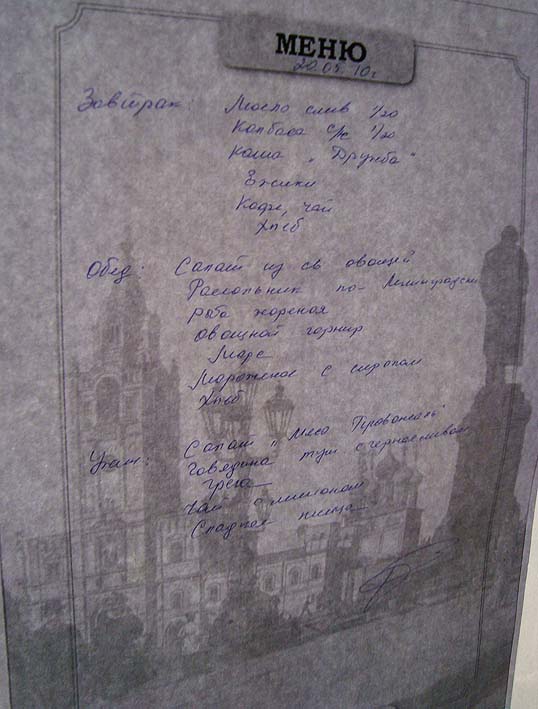 МЕНЮ
20.05.10г
Завтрак: Масло слив 1/20
Колбаса с/к 1/20
Каша "Дружба"
Ежики
Кофе, чай
Хлеб
Обед: Салат из св овощей
Рассольник по-Ленинградски
рыба жареная
овощной гарнир
Морс
Мороженое с сиропом
Хлеб
Ужин: Салат "Мясо Провансаль"
Говядина туш с черносливом
греча
Чай с лимоном
Сладкая пицца